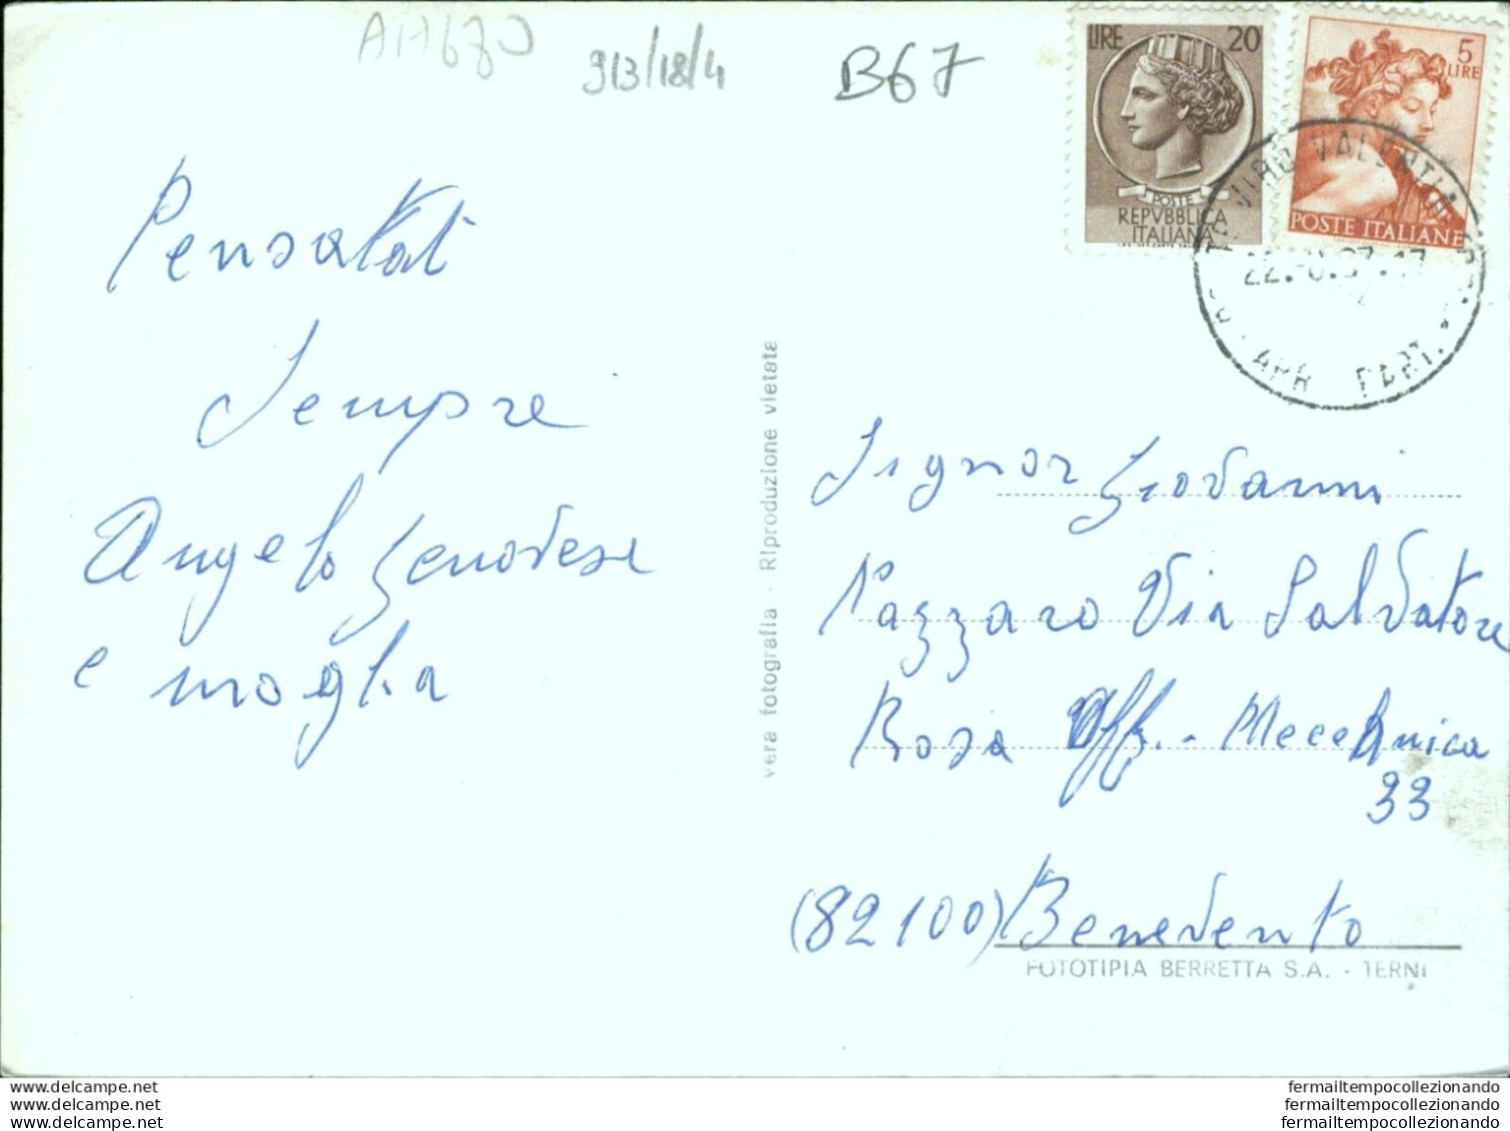 A17680
913/18/4
B67
LIRE 20
POSTE
REPVBBLICA
ITALIANA
5
LIRE
POSTE ITALIANE
VIBO VALENTIA
ARR PART.
Pensatati
Sempre
Angelo Genovese
e moglia
vera fotografia - Riproduzione vietata
Signor Giovanni
Pazzaro Via Salvatore
Rosa Off. - Meccanica
33
(82100) Benevento
FOTOTIPIA BERRETTA S.A. - TERNI
www.delcampe.net
www.delcampe.net
www.delcampe.net
fermailtempocollezionando
fermailtempocollezionando
fermailtempocollezionando